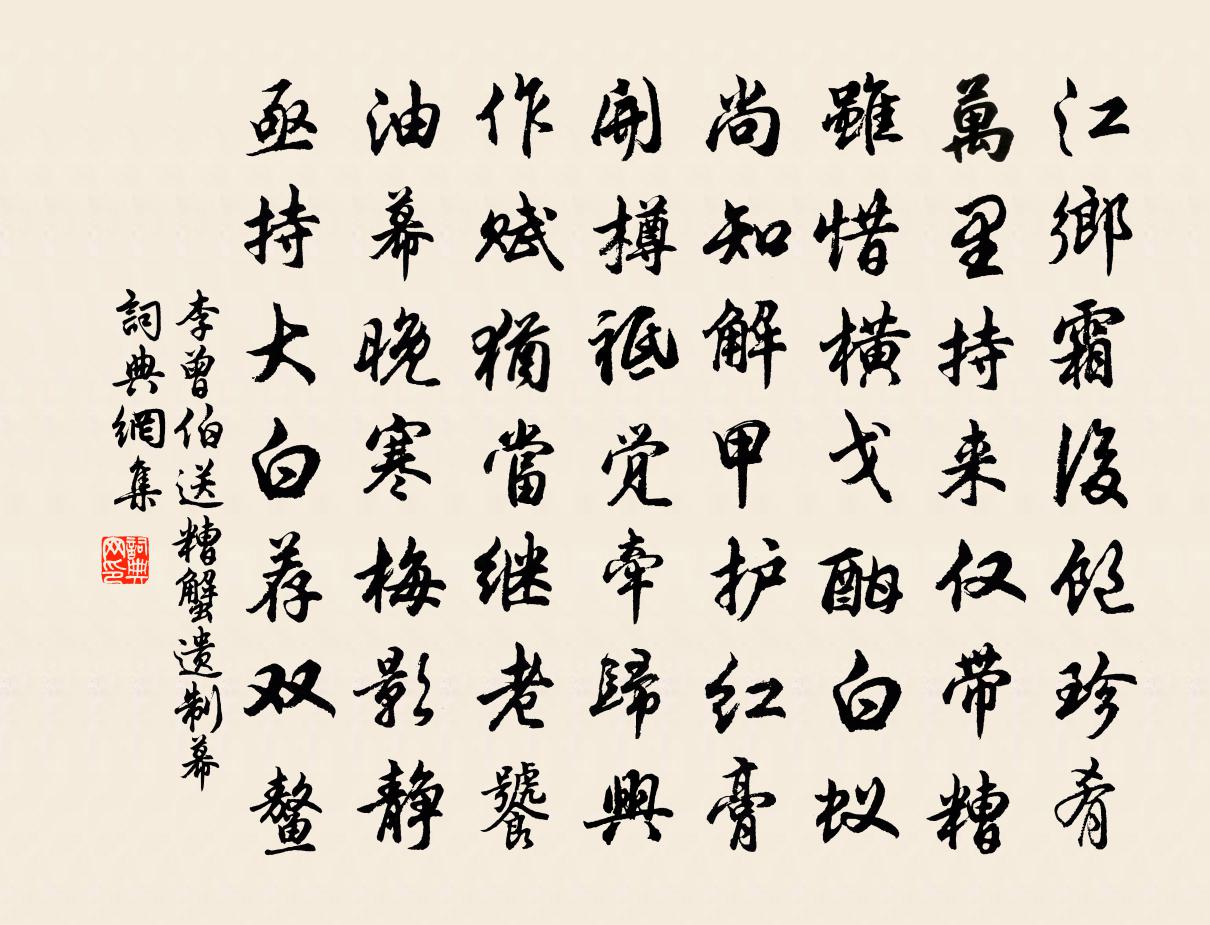 江鄉霜後飽珍肴
萬里持来仅带糟
雖惜橫戈酣白蚁
尚知解甲护红膏
開樽祗觉牽歸興
作赋猶當继老饕
油幕晚寒梅影静
亟持大白荐双螯
李曾伯送糟蟹遗制幕
詞典網集
詞典网印